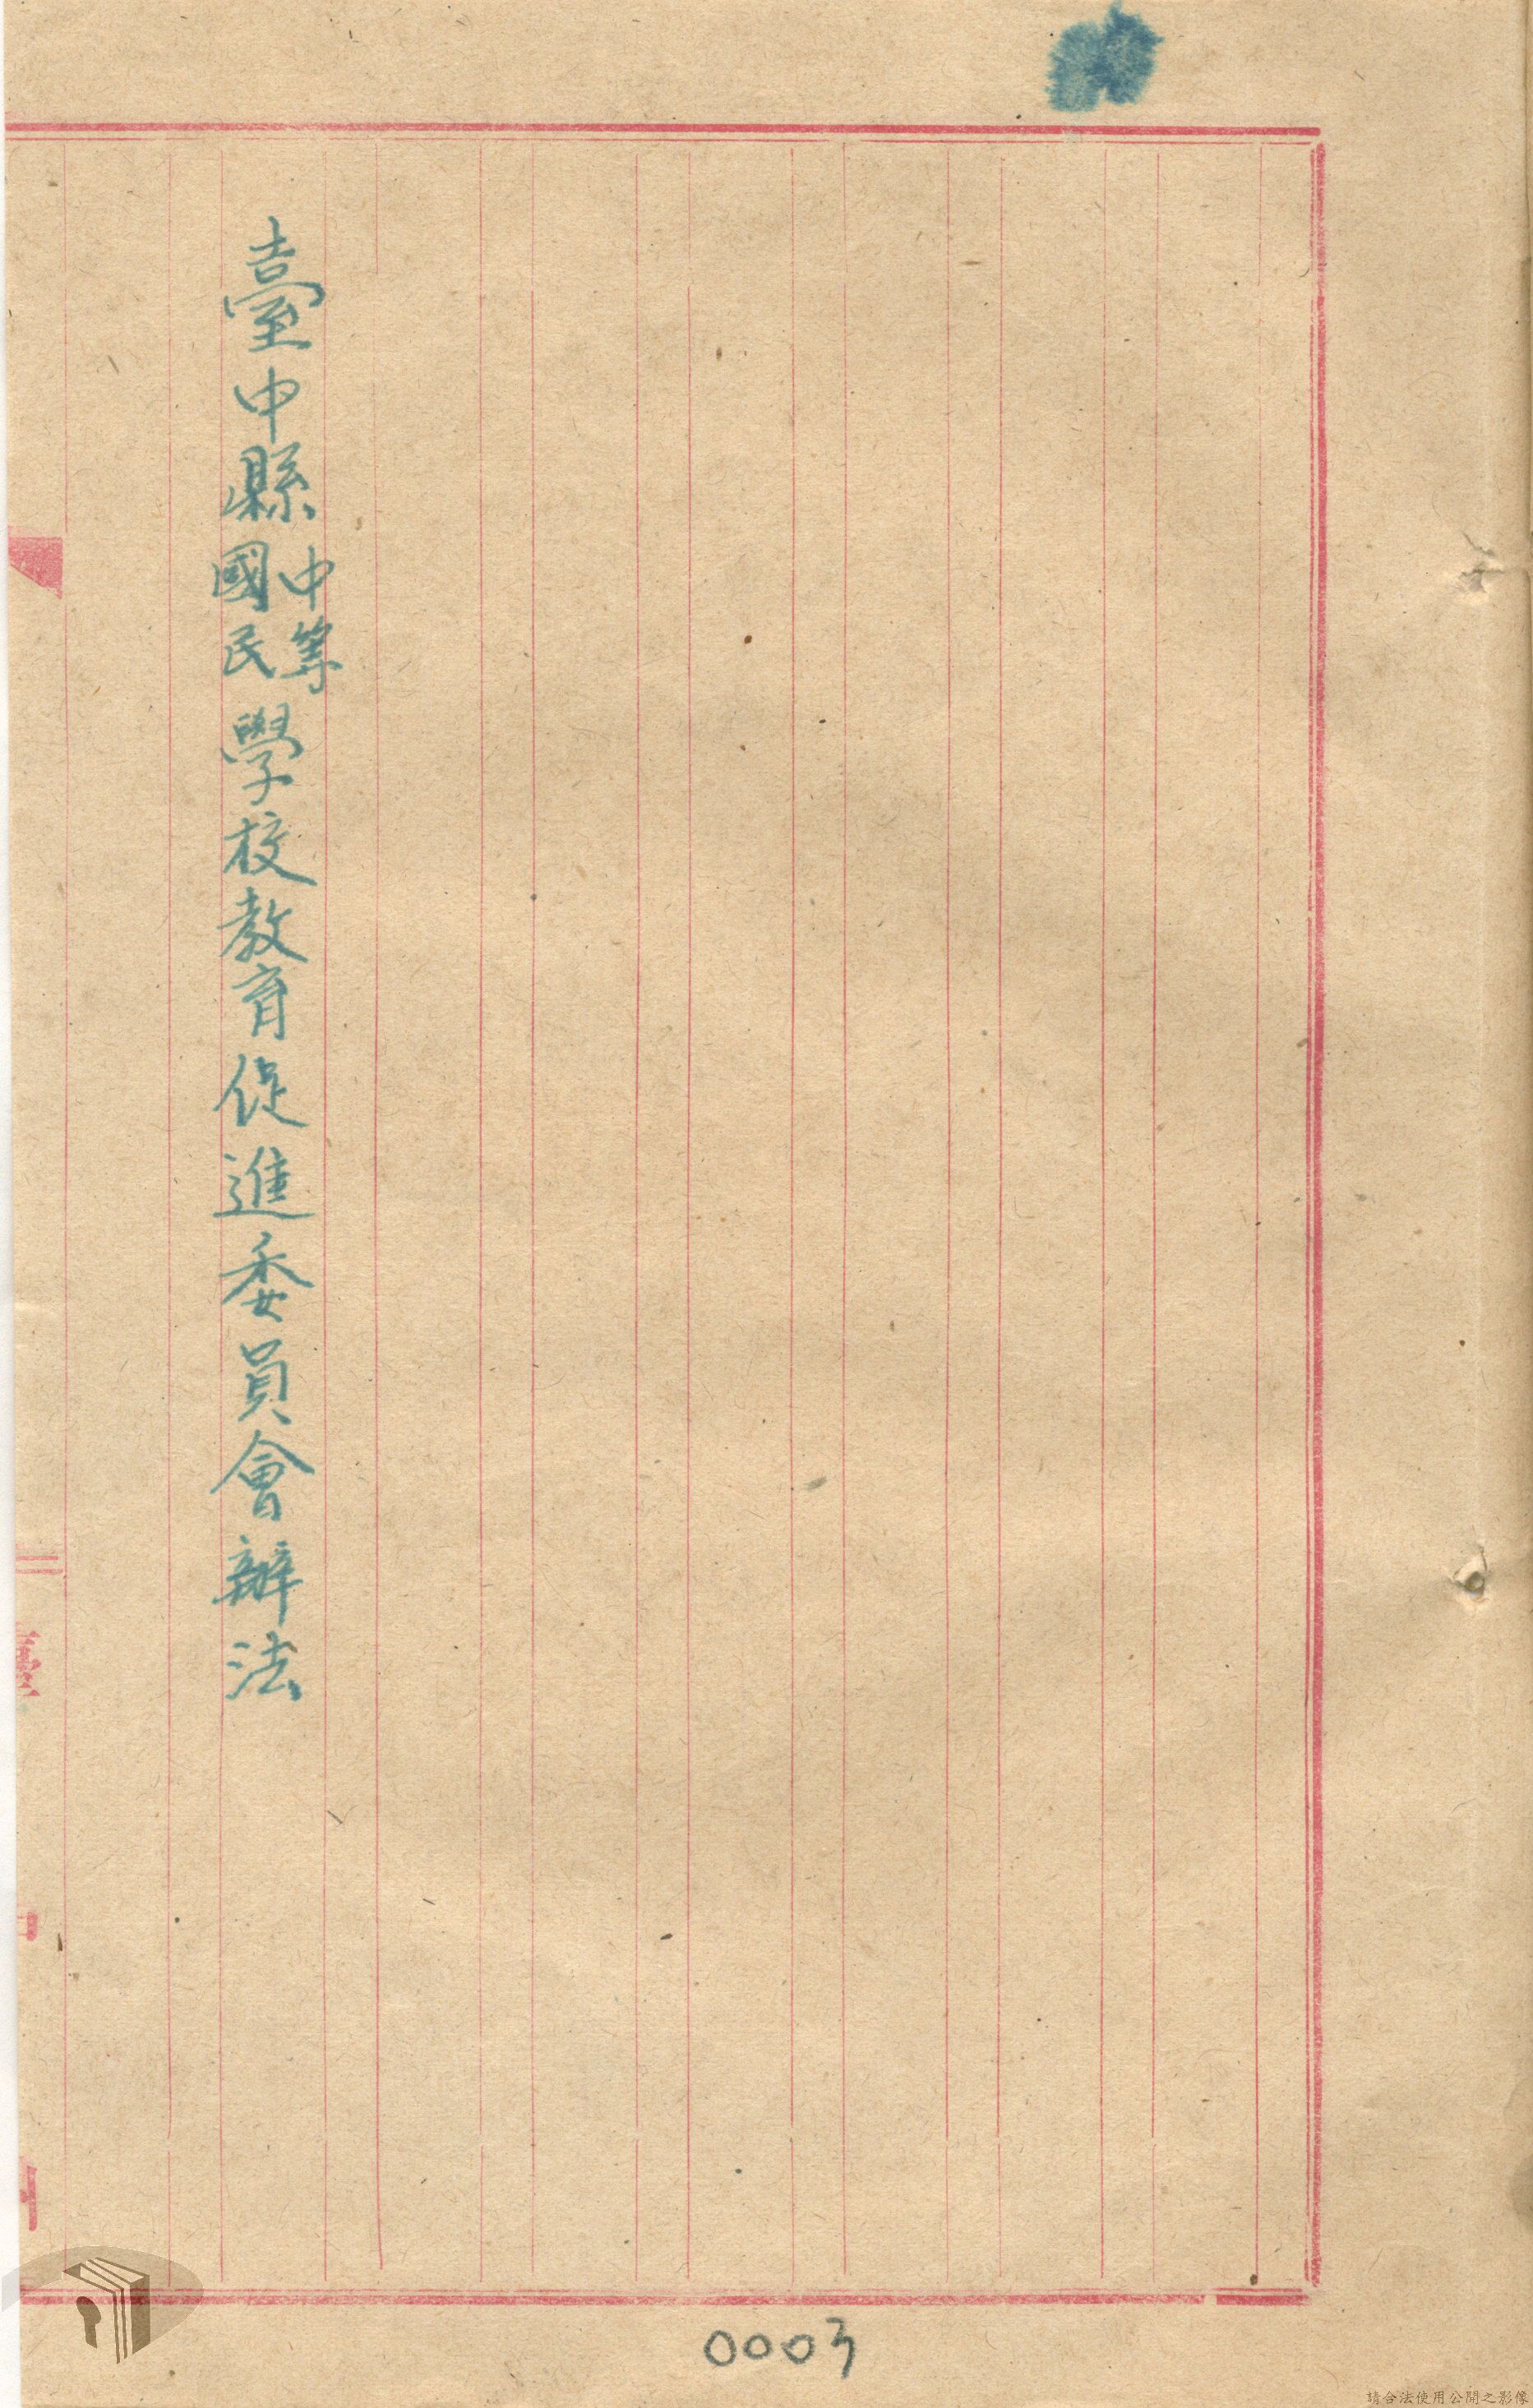 臺中縣中等國民學校教育促進委員會辦法
臺中
0003
請合法使用公開之影像